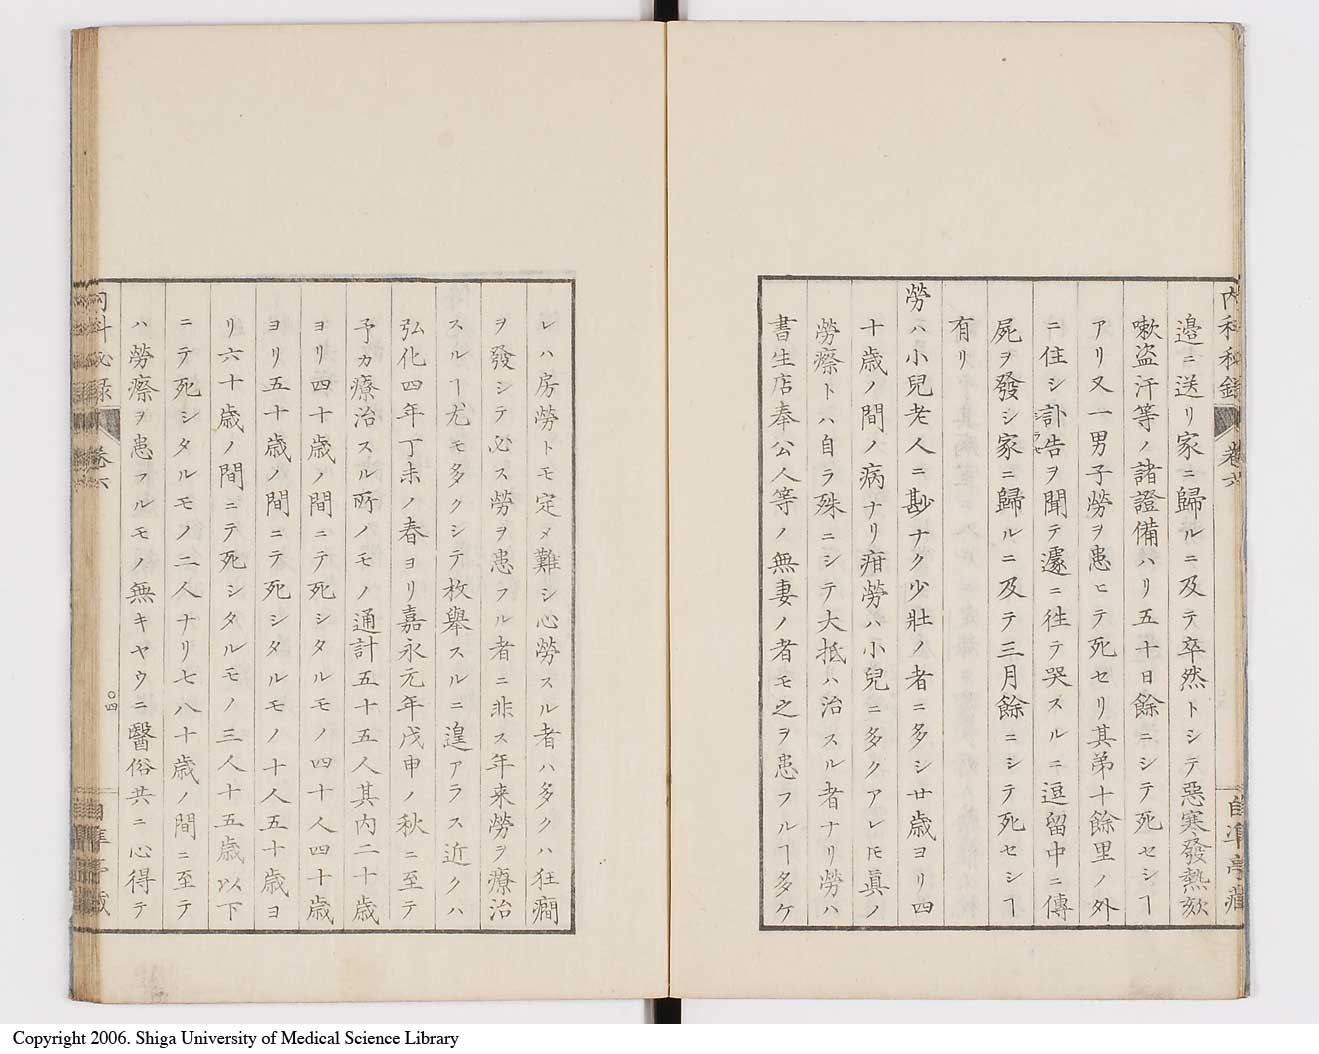 内科秘録 卷六 自準亭藏
邉ニ送リ家ニ歸ルニ及テ卒然トシテ惡寒發熱欬
嗽盗汗等ノ諸證備ハリ五十日餘ニシテ死セシヿ
アリ又一男子勞ヲ患ヒテ死セリ其弟十餘里ノ外
ニ住シ訃告ヲ聞テ遽ニ徃テ哭スルニ逗留中ニ傳
シラセ
屍ヲ發シ家ニ歸ルニ及テ三月餘ニシテ死セシヿ
有リ
勞ハ小兒老人ニ尠ナク少壯ノ者ニ多シ廿歳ヨリ四
十歳ノ間ノ病ナリ疳勞ハ小兒ニ多クアレ𪜈眞ノ
勞瘵トハ自ラ殊ニシテ大抵ハ治スル者ナリ勞ハ
書生店奉公人等ノ無妻ノ者モ之ヲ患フルヿ多ケ
レハ房勞トモ定メ難シ心勞スル者ハ多クハ狂癎
ヲ發シテ必ス勞ヲ患フル者ニ非ス年来勞ヲ療治
スルヿ尤モ多クシテ枚舉スルニ遑アラス近クハ
弘化四年丁未ノ春ヨリ嘉永元年戊申ノ秋ニ至テ
予カ療治スル所ノモノ通計五十五人其内二十歳
ヨリ四十歳ノ間ニテ死シタルモノ四十人四十歳
ヨリ五十歳ノ間ニテ死シタルモノ十人五十歳ヨ
リ六十歳ノ間ニテ死シタルモノ三人十五歳以下
ニテ死シタルモノ二人ナリ七八十歳ノ間ニ至テ
ハ勞瘵ヲ患フルモノ無キヤウニ醫俗共ニ心得テ
内科秘録 卷六 〇四 自準亭藏
Copyright 2006. Shiga University of Medical Science Library